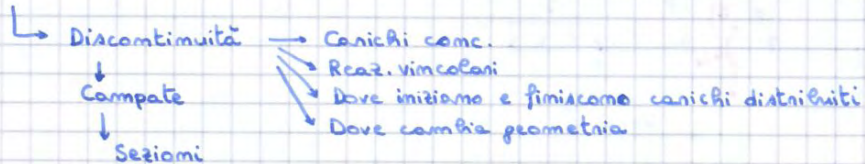 Discontinuità → Carichi conc.
Reaz. vincolari
Campate
Dove iniziano e finiscono carichi distribuiti
Dove cambia geometria
Sezioni